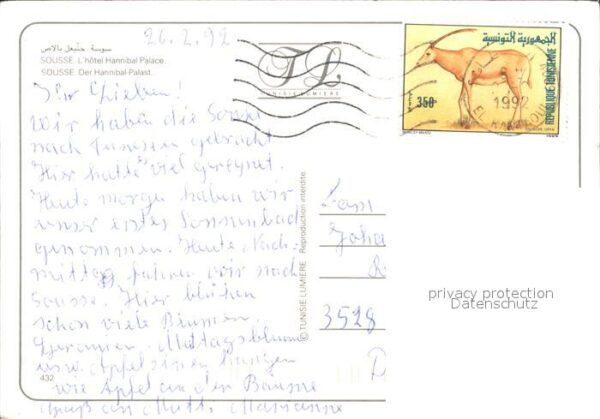 26.2.92
سوسة - حنبعل بالاص
SOUSSE. L'hôtel Hannibal Palace.
SOUSSE. Der Hannibal-Palast.
TL
TUNISIE LUMIERE
الجمهورية التونسية
REPUBLIQUE TUNISIENNE
350
1992
Ihr Lieben!
Wir haben die Sonne
nach Tunesien gebracht
Hier hatte es viel geregnet.
Heute morgen haben wir
unser erstes Sonnenbad
genommen. Heute Nach-
mittag fahren wir nach
Sousse. Hier blühen
schon viele Blumen.
Geranien, Mittagsblumen
usw. Apfelsinen hängen
wie Äpfel an den Bäume
Gruß an Mutti Marianne
© TUNISIE LUMIERE Reproduction interdite
Fam
Joha
3528
D
432
privacy protection
Datenschutz